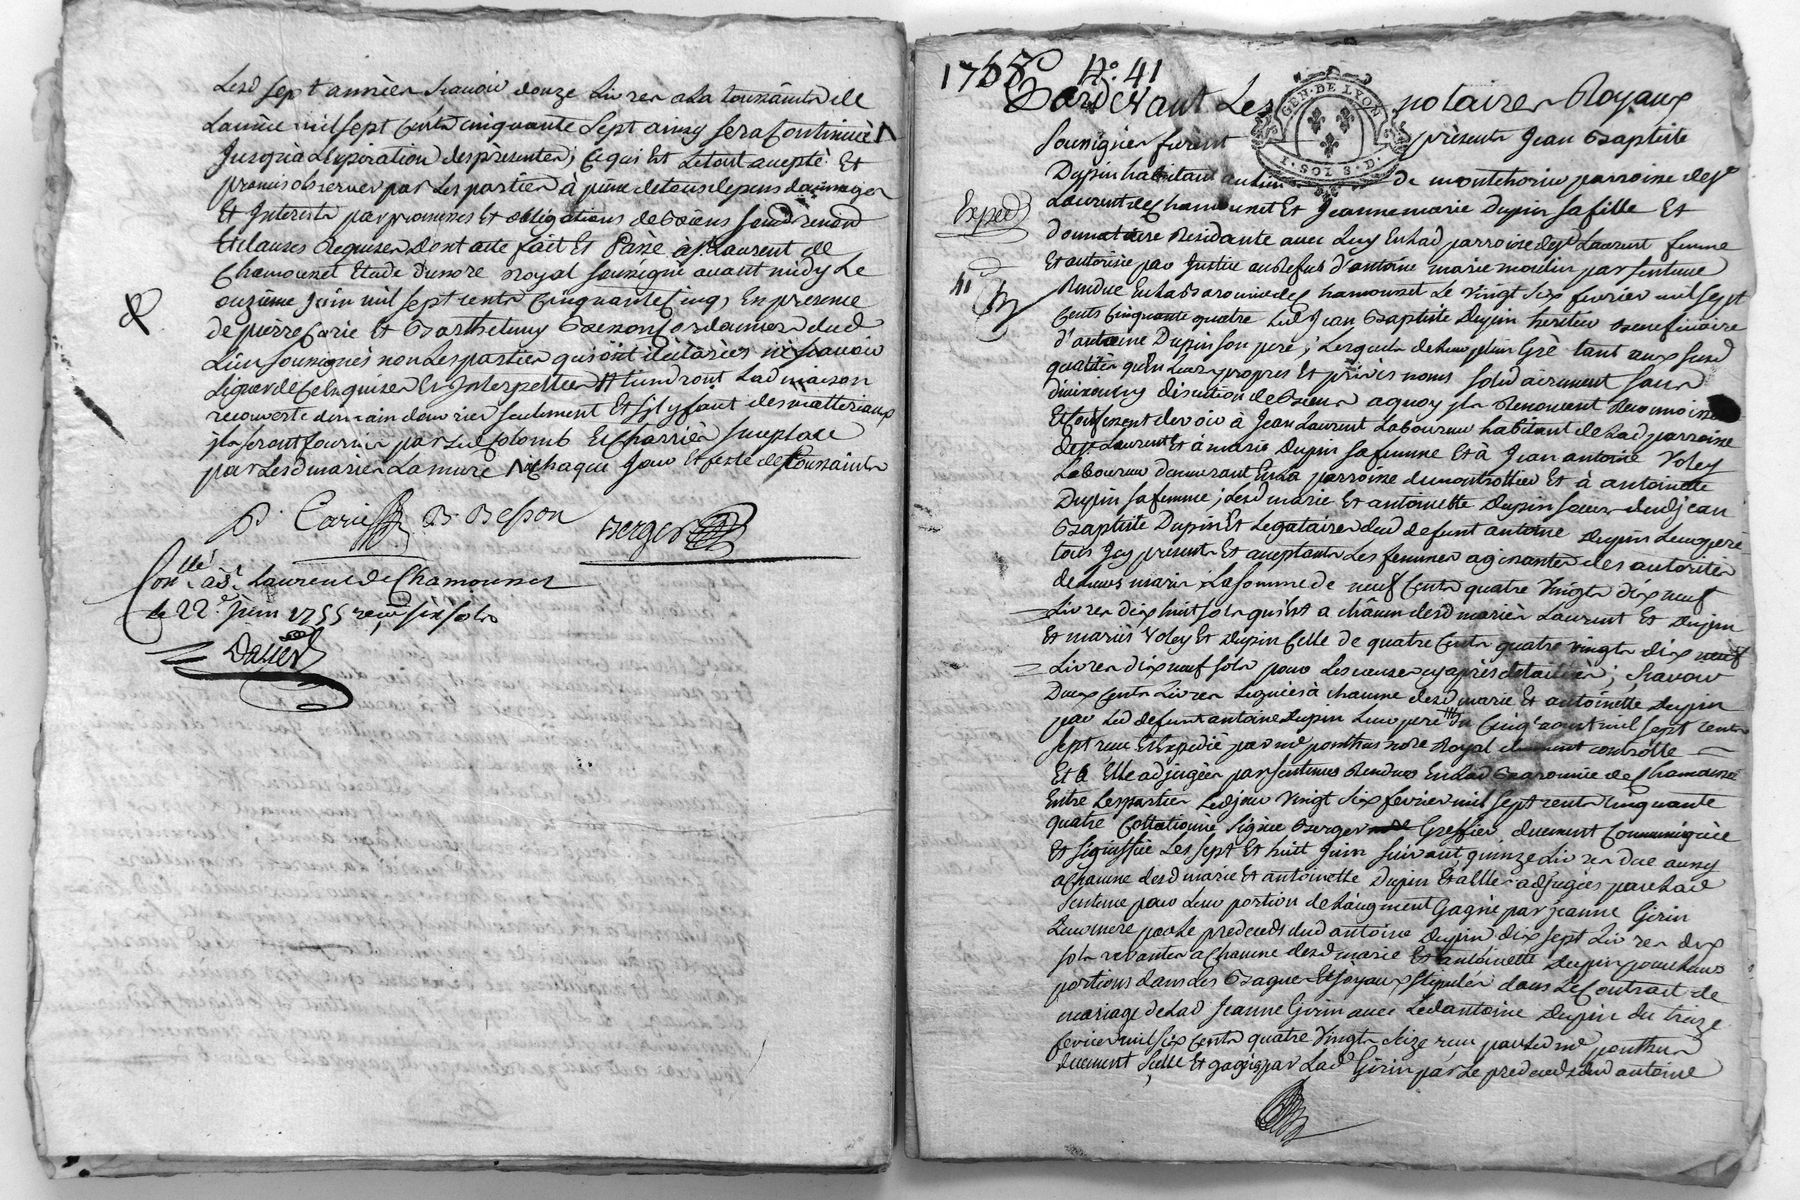 Lesd sept années scavoir douze Livres a La toussaints de
Lannée mil sept Cents cinquante sept ainsy sera Continué
Jusqua Lexpiration des présentes, Ce qui Est Le tout accepté Et
promis observer par Les parties à peine de tous depens dommages
Et Interests par promesses Et obligations de biens
Et clauses Requises dont acte fait Et Passé a St Laurent de
Chamousset Etude Du nore Royal soussigné avant midy Le
onzieme Juin mil sept cents Cinquante Cinq, En presence
de pierre Carie Et Barthelemy Besson Cordonniers dud
Lieu soussignés non Les parties qui ont déclarées ne scavoir
signer de Ce Enquises Et Interpellées tiendront Lad maison
recouverte de main d'ouvrier seulement Et s'il y faut des matteriaux
ils seront fournis par Led Colomb Et Charriés sur place
par Lesd mariés Lamure chaque Jour Et feste de toussaints
P. Carie B. Besson Berger
Conllé a St Laurent de Chamousset
le 22e Juin 1755 reçu six sols
1758 No. 41
GEN. DE LYON
I. SOL S. D.
Pardevant Les notaires Royaux
soussignés furent présents Jean Baptiste
Dupin habitant au Lieu de montchorier parroisse de St
Exped
Laurent de Chamousset Et Jeanne marie Dupin sa fille Et
donnataire Residante avec Luy En Lad parroisse de St Laurent femme
Et autorisée par Justice au Refus d'antoine marie moulin par sentence
41
Rendue En La Baronnie de Chamousset Le vingt six fevrier mil sept
Cents Cinquante quatre Led Jean Baptiste Dupin heritier Beneficiaire
d'antoine Dupin son pere, Lesquels de Leur plein Gré tant aux susd
qualités qu'En Leurs propres Et privés noms solidairement sans
division ny discution de Biens a quoy ils Renoncent Reconnoissent
Et Confessent devoir à Jean Laurent Laboureur habitant de Lad parroisse
de St Laurent Et à marie Dupin sa femme Et à Jean antoine Voley
Laboureur demeurant En La parroisse de montrottier Et à antoinette
Dupin sa femme; Lesd marie Et antoinette Dupin sœurs dud Jean
Baptiste Dupin Et Legataires dud defunt antoine Dupin Leur pere
tous Icy presents Et acceptants Les femmes agissantes des autorités
de Leurs maris La somme de neuf Cents quatre Vingts dix neuf
Livres dix huit sols qu'Est a chacun desd mariés Laurent Et Dupin
Et mariés Voley Et Dupin Celle de quatre Cents quatre vingts dix neuf
Livres dix neuf sols pour Les causes cy après detaillées; scavoir
Deux Cents Livres Leguées à chacune desd marie Et antoinette Dupin
par Led defunt antoine Dupin Leur pere du Cinq aoust mil sept cents
sept reçu Et Expedié par me ponthus nore Royal duement controllé
Et à Elle adjugées par sentences Rendues En Lad Baronnie de Chamousset
Entre Les parties Led jour Vingt six fevrier mil sept cents cinquante
quatre Collationné signée Berger Greffier duement Communiquée
Et signiffiée Les sept Et huit Juin suivant, quinze Livres due aussy
a Chacune desd marie Et antoinette Dupin Et a Elles adjugées par Lad
sentence pour Leur portion de L'augment Gagné par Jeanne Girin
Leur mere par Le predecedé dud antoine Dupin dix sept Livres dix
sols revenants a Chacune desd marie Et antoinette Dupin pour Leurs
portions dans Les Bagues Et Joyaux stipulés dans Le Contract de
mariage de Lad Jeanne Girin avec Led antoine Dupin du treize
fevrier mil six Cents quatre Vingts seize reçu par Led me ponthus
duement scellé Et gagés par Lad Girin par Le predecedé dud antoine